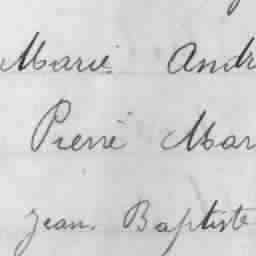 Marie Andr
Pierre Mar
Jean. Baptiste